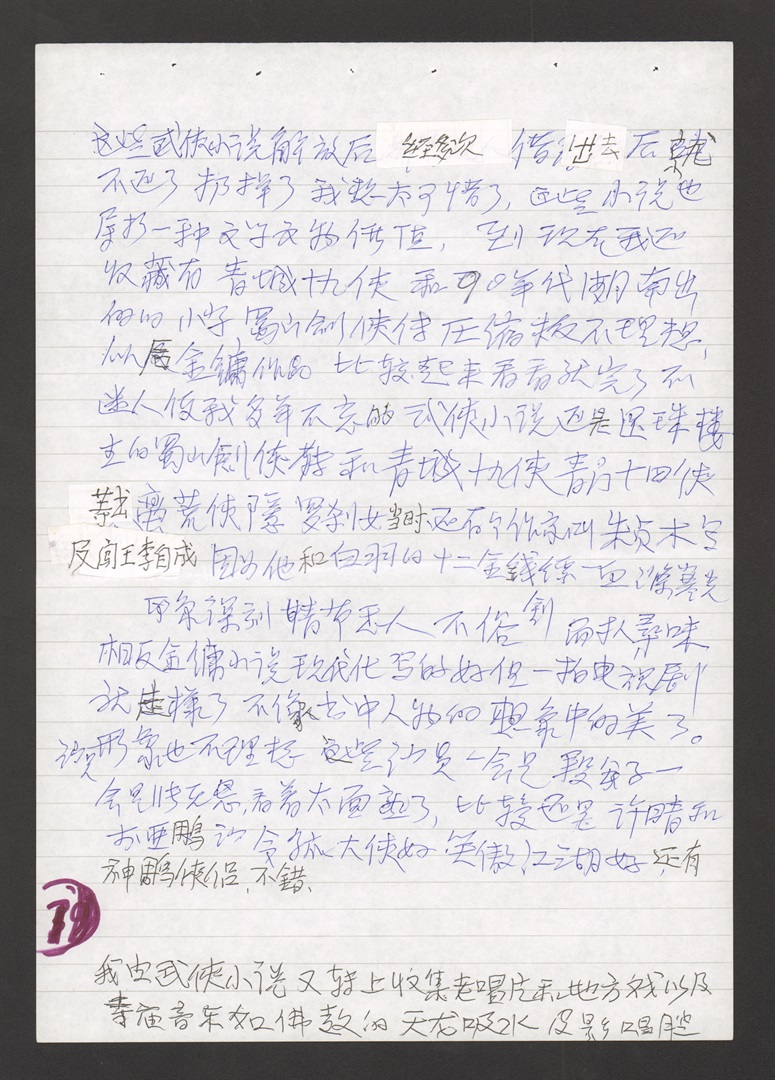 这些武侠小说解放后 经多次 人借 出去 后就
不还了 扔掉了 我想太可惜了, 这些小说也
属于一种文学文物价值, 到现在我还
收藏有 青城十九侠 和 90年代湖南出
的小字 蜀山剑侠传 压缩板不理想,
金镛作品 比较起来看看就完了 不
迷人使我多年不忘的 武侠小说还是还珠楼
主的蜀山剑侠 和青城十九侠 青门十四侠
离荒侠隐 罗刹女当时还有个作家叫 朱贞木写
及闯王李自成 因为他和白羽的十二金钱镖一
深刻 情节 人 不俗 寻味
相反金镛小说现代化 写的好但一拍电视剧
就走样了 不像书中人物的 想象中的美了。
演员形象也不理想 这些演员一会是 段
会是 看着太面熟了, 比较还是 许晴和
李亚鹏演 令狐大侠好 笑傲江湖好 还有
神鹏侠侣, 不错、
19
我由武侠小说 又转上收集老唱片和地方戏以及
寺庙音乐如佛教的 天龙吸水 及影 唱腔